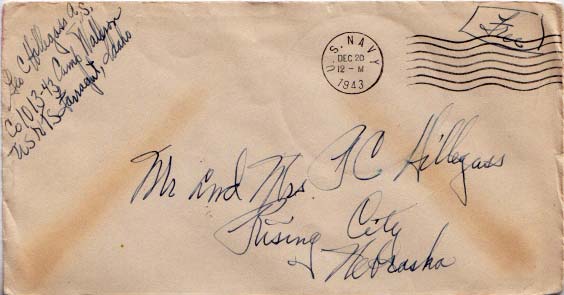 Geo C Hillegass A.S.
Co 1013-43 Camp Waldron
USNTS Farragut, Idaho
U.S. NAVY
DEC 20
12-M
1943
Free
Mr and Mrs. F C Hillegass
Rising City
Nebraska